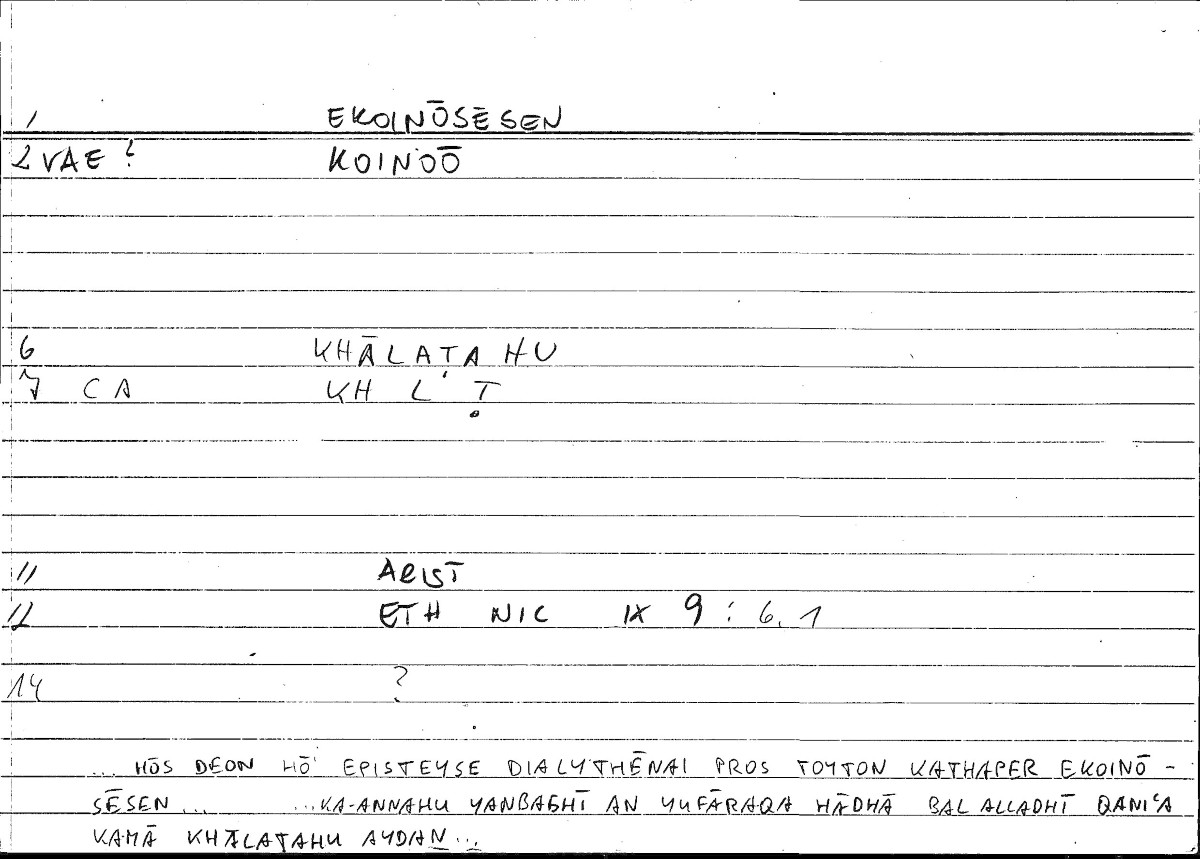 1 EKOINŌSĒSEN
2 VAE ? KOINOŌ
6 KHĀLAṬAHU
7 CA KH L Ṭ
11 ARIST
12 ETH NIC IX 9 : 6, 1
14 ?
... HŌS DEON HŌ' EPISTEYSE DIALYTHĒNAI PROS TOYTON KATHAPER EKOINŌ -
SĒSEN ... ... KA-ANNAHU YANBAGHĪ AN YUFĀRAQA HĀDHĀ BAL ALLADHĪ QANI'A
KAMĀ KHĀLAṬAHU AYDAN ...